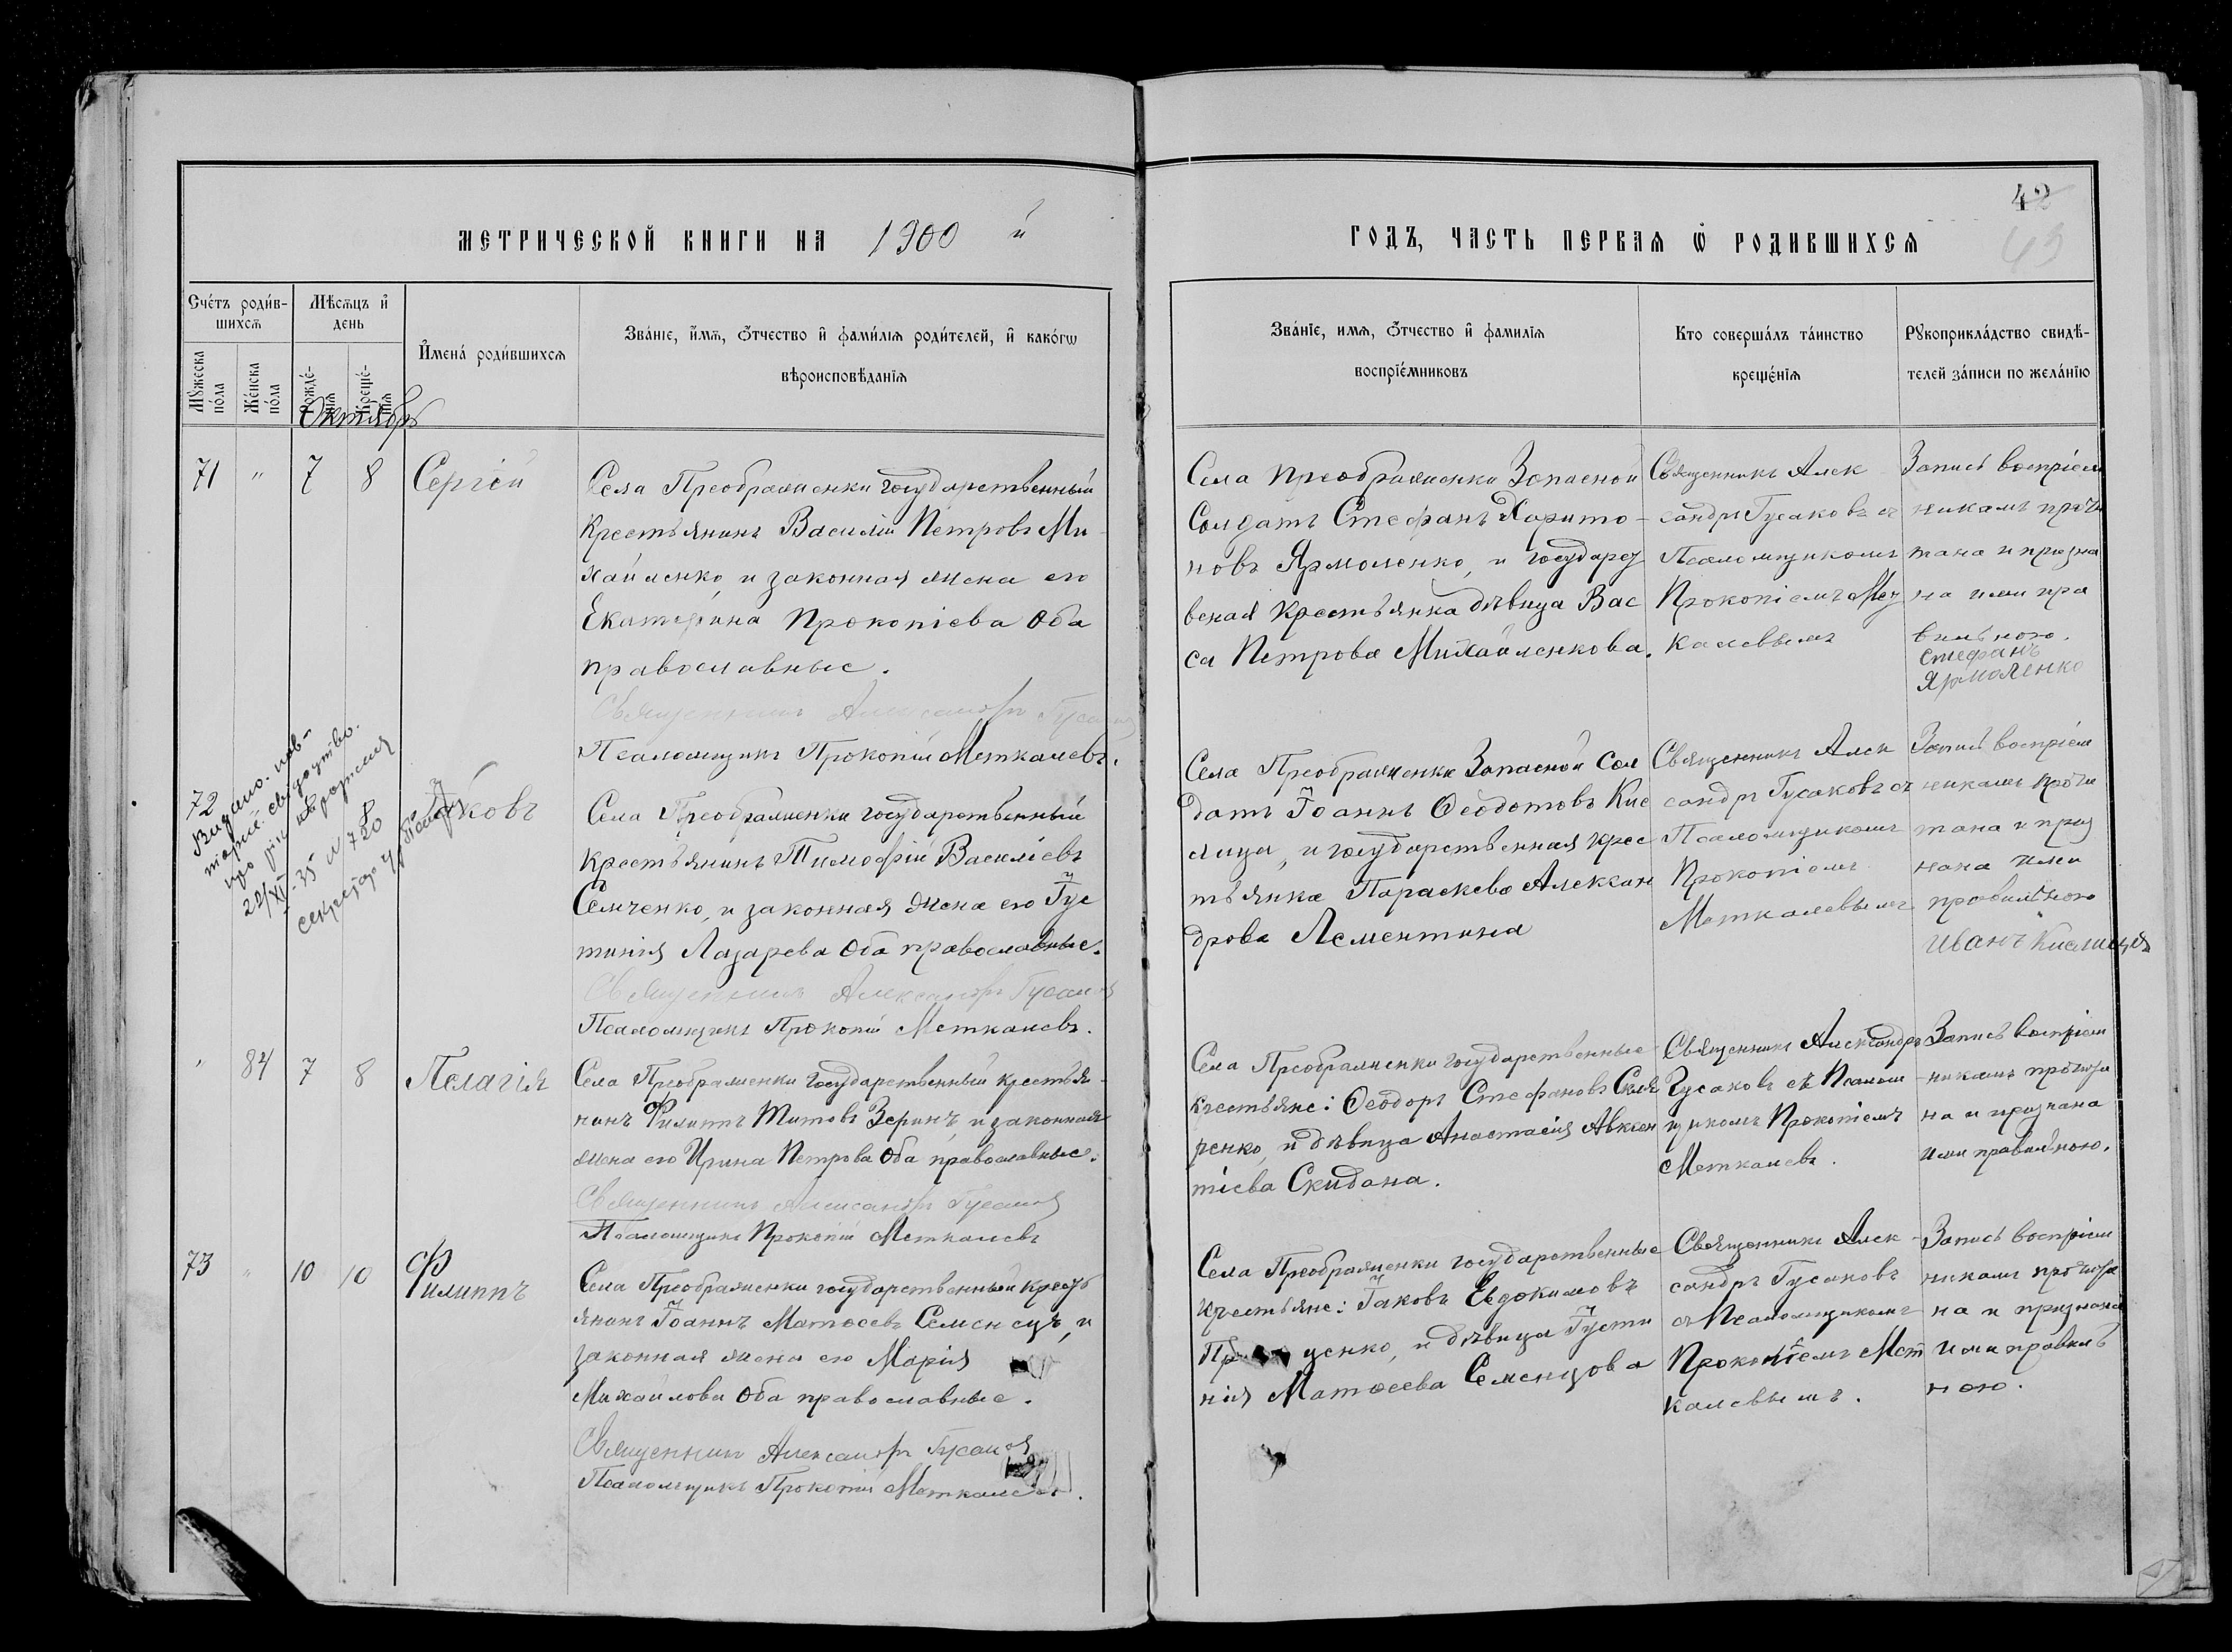 42
43
МЕТРИЧЕСКОЙ КНИГИ НА 1900 й
ГОДЪ, ЧАСТЬ ПЕРВАЯ Ѡ РОДИВШИХСЯ
Счетъ родив-
шихся
Мѣсяцъ и
день
Мужеска
пола
Женска
пола
Рожде-
нія
Креще-
нія
Имена родившихся
Званіе, имя, отчество и фамилія родителей, и какогѡ
вѣроисповѣданія
Званіе, имя, отчество и фамилія
воспріемниковъ
Кто совершалъ таинство
крещенія
Рукоприкладство свидѣ-
телей записи по желанію
Октябрь
71 " 7 8 Сергій
Села Преображенки государственный
Крестьянинъ Василій Петровъ Ми-
хайленко, и законная жена его
Екатерина Прокопіева Оба
православные.
Священникъ Александръ Гусаковъ
Псаломщикъ Прокопій Меткалевъ.
Села Преображенки Запасной
Солдатъ Стефанъ Харито-
новъ Ярмоленко, и государст
венная Крестьянка дѣвица Вас
са Петрова Михайленкова.
Священникъ Алек
сандръ Гусаковъ съ
Псаломщикомъ
Прокопіемъ Мет
калевымъ
Запись воспріем
никамъ прочи
тана и призна
на ими пра
вильною.
Стефанъ
Ярмоленко
72
Видано. пов-
торне свідоцтво
про рік народження
22/XI-35 № 720
Секретар
Іаковъ
Села Преображенки государственный
крестьянинъ Тимофій Василіевъ
Семченко, и законная жена его Іус
тинія Лазарева Оба православные.
Священникъ Александръ Гусаковъ
Псаломщикъ Прокопій Меткалевъ.
Села Преображенки Запасной Сол
датъ Іоаннъ Ѳеодотовъ Кис
лица, и государственная крес
тьянка Параскева Алексан
дрова Лементина
Священникъ Алек
сандръ Гусаковъ съ
Псаломщикомъ
Прокопіемъ
Меткалевымъ
Запись воспріем
никамъ прочи
тана и приз
нана ими
правильною
Иванъ Кислица
" 84 7 8 Пелагія
Села Преображенки Государственный крестья-
нинъ Филиппъ Титовъ Зеринъ, и законная
жена его Ирина Петрова Оба православные.
Священникъ Александръ Гусаковъ
Псаломщикъ Прокопій Меткалевъ
Села Преображенки государственные
крестьяне: Ѳеодоръ Стефановъ Скля
ренко, и дѣвица Анастасія Авксен
тіева Скидана.
Священникъ Александръ
Гусаковъ съ Псалом
щикомъ Прокопіемъ
Меткалевъ.
Запись воспріем
никамъ прочита
на и признана
ими правильною.
73 " 10 10 Филиппъ
Села Преображенки государственный крест
янинъ Іоаннъ Матѳеевъ Семенецъ, и
законная жена его Марія
Михайлова Оба православные.
Священникъ Александръ Гусаковъ
Псаломщикъ Прокопій Меткалевъ.
Села Преображенки государственные
крестьяне: Іаковъ Евдокимовъ
ценко, и дѣвица Іусти
нія Матѳеева Семенцова
Священникъ Алек
сандръ Гусаковъ
съ Псаломщикомъ
Прокопіемъ Мет
калевымъ.
Запись воспріем
никамъ прочита
на и признана
ими правиль
ною.